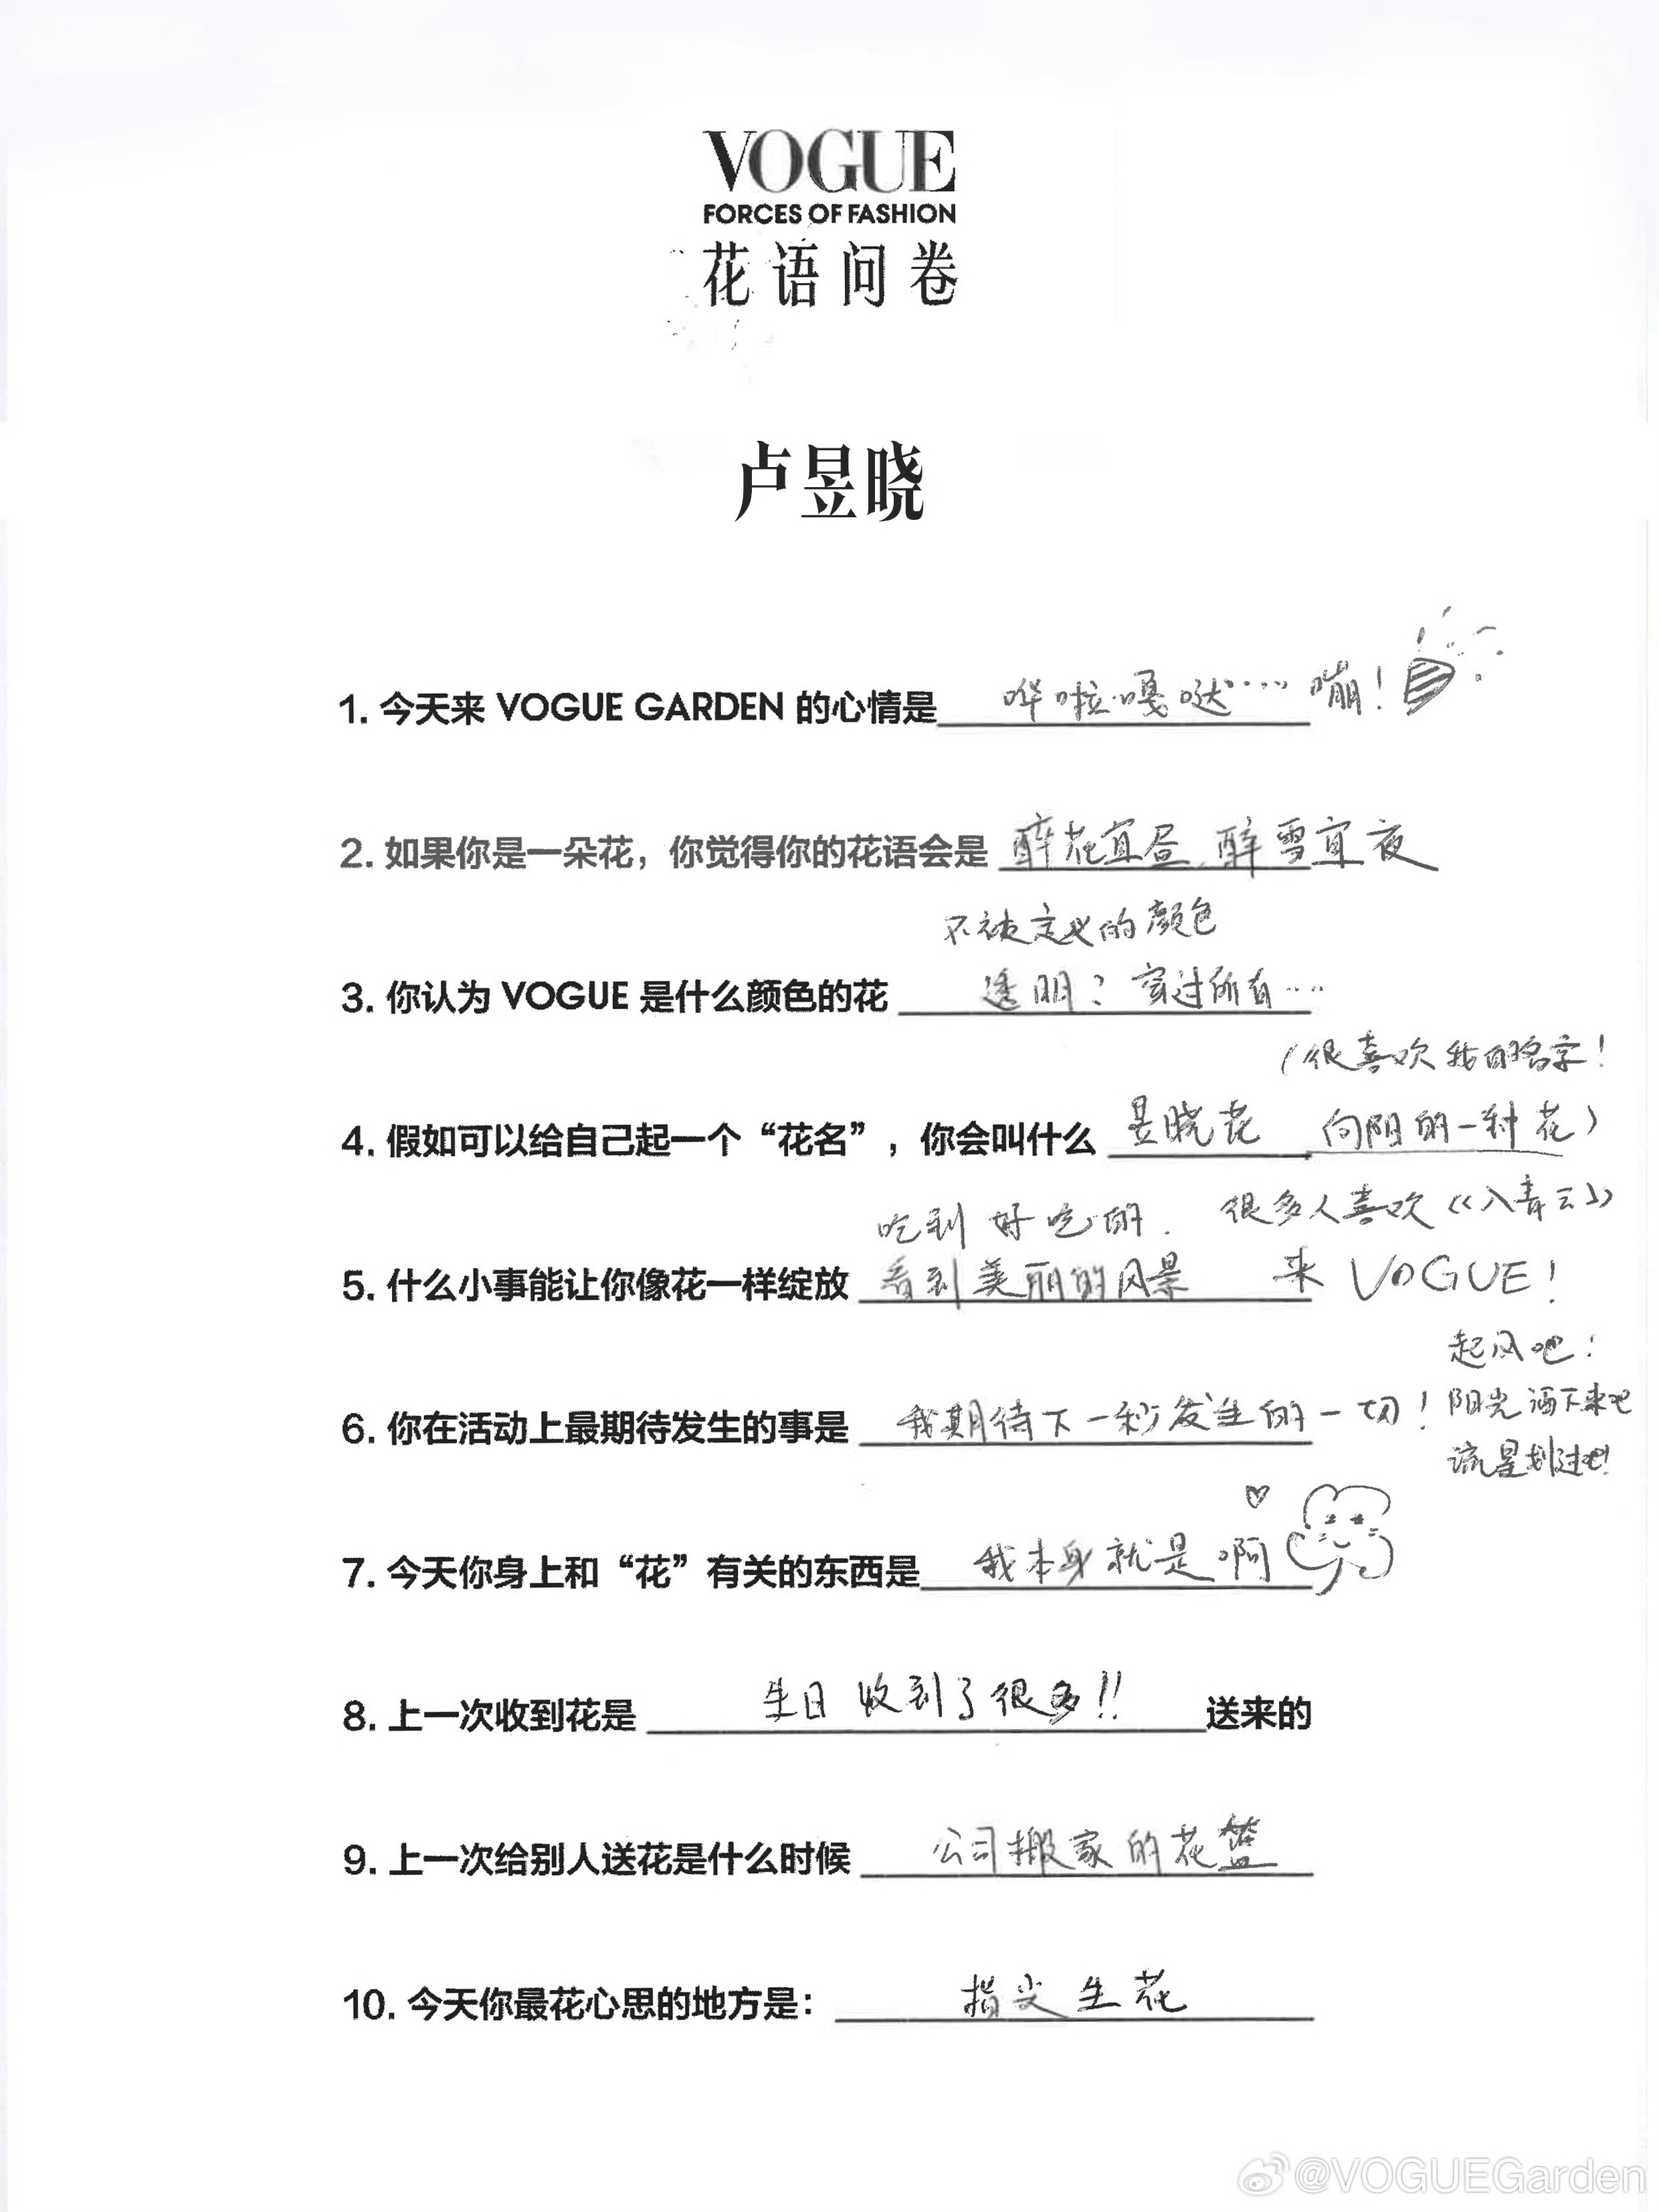 VOGUE
FORCES OF FASHION
花语问卷
卢昱晓
1. 今天来 VOGUE GARDEN 的心情是 哗啦嘎哒…… 嘣！
2. 如果你是一朵花，你觉得你的花语会是 醉花宜昼 醉雪宜夜
不被定义的颜色
3. 你认为 VOGUE 是什么颜色的花 透明？穿过所有……
（很喜欢我的名字！
4. 假如可以给自己起一个“花名”，你会叫什么 昱晓花 向阳的一种花）
吃到好吃的. 很多人喜欢《入青云》
5. 什么小事能让你像花一样绽放 看到美丽的风景 来 VOGUE！
起风吧！
6. 你在活动上最期待发生的事是 我期待下一秒发生的一切！阳光洒下来吧
流星划过吧！
7. 今天你身上和“花”有关的东西是 我本身就是啊
8. 上一次收到花是 生日收到了很多!! 送来的
9. 上一次给别人送花是什么时候 公司搬家的花篮
10. 今天你最花心思的地方是： 指尖生花
@VOGUEGarden